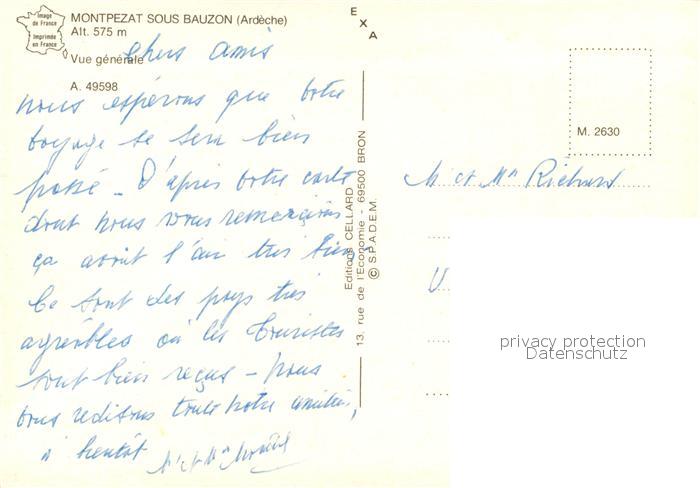 Image
de France
Imprimée
en France
MONTPEZAT SOUS BAUZON (Ardèche)
Alt. 575 m
Vue générale
A. 49598
E
X
A
chers amis
nous espérons que votre
voyage se sera bien
passé _ D'après votre carte
dont nous vous remercions
ça avait l'air très bien
Ce sont des pays très
agréables où les touristes
sont bien reçus - Nous
vous redisons toute notre amitié,
à bientôt Mr et Mme
Editions CELLARD
13, rue de l'Economie - 69500 BRON
© S.P.A.D.E.M.
M. 2630
M et Mme Richard
V
privacy protection
Datenschutz